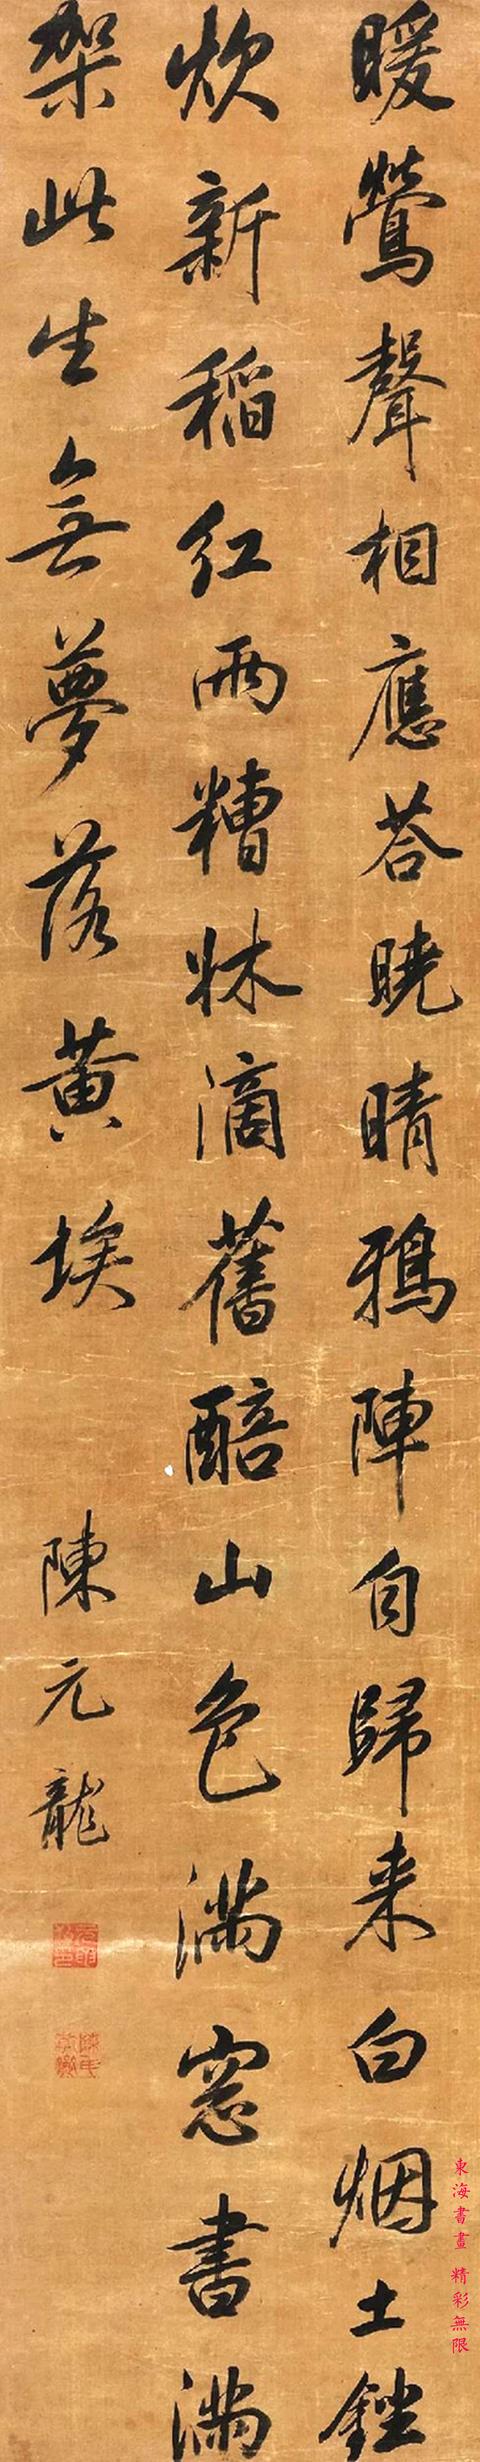 暖鶯聲相應荅曉晴鴉陣自歸来白烟土銼
炊新稻紅雨糟牀滴舊醅山色滿窓書滿
架此生無夢落黄埃
陳元龍
東海書畫 精彩無限